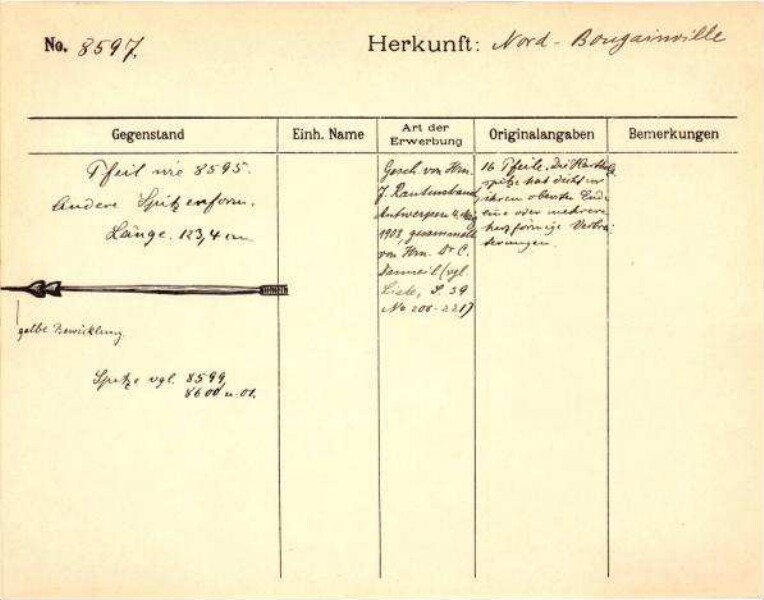 No. 8597.
Herkunft: Nord-Bougainville
Gegenstand
Einh. Name
Art der Erwerbung
Originalangaben
Bemerkungen
Pfeil wie 8595.
Andere Spitzenform.
Länge. 123,4 cm
gelbe Bewicklung
Spitze vgl. 8599,
8600 u. 01.
Gesch. von Hrn.
J. Rautenstrauch,
Antwerpen
1903, gesammelt
von Hrn. Dr C.
Danneil (vgl.
Liste, S. 39
No 206-221)
16 Pfeile. Die Hartholz
spitze hat dicht vor
ihrem obersten Ende
eine oder mehrere
herzförmige Verbrei
terungen.